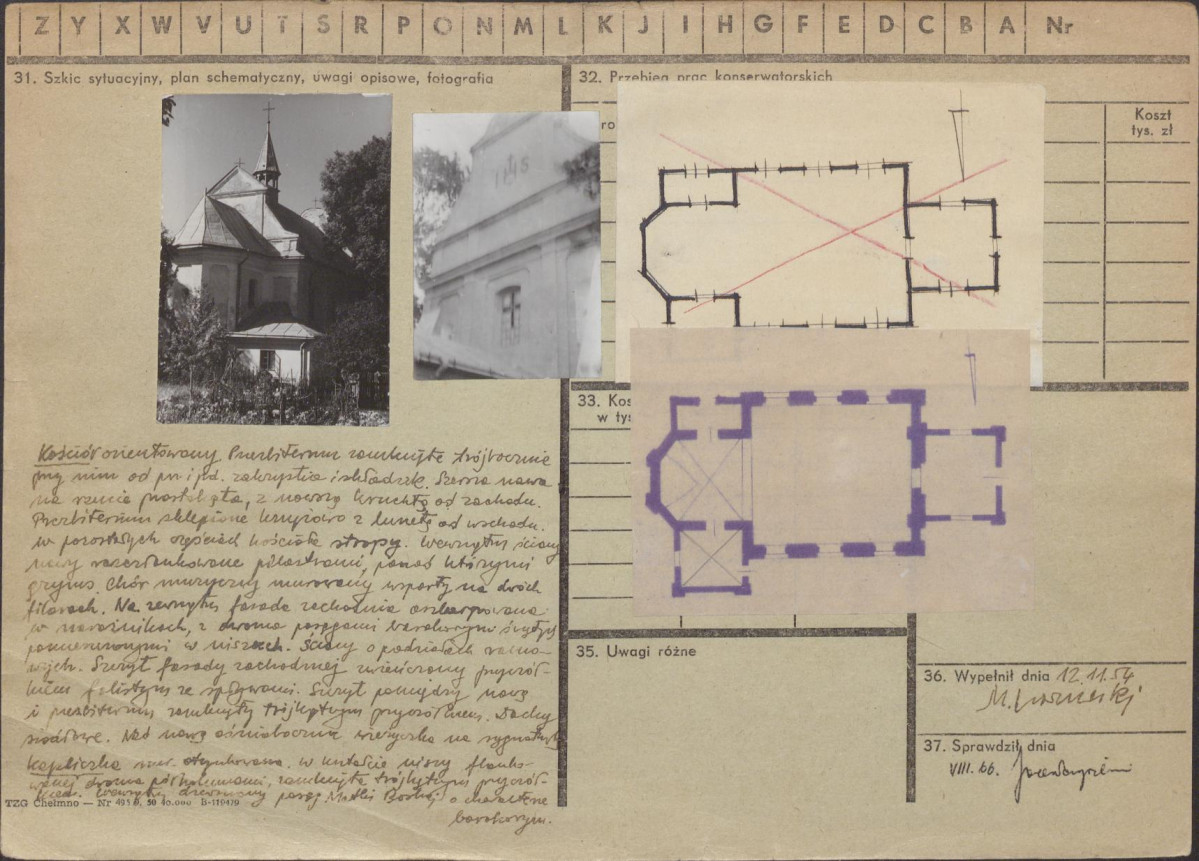 Z Y X W V U T S R P O N M L K J I H G F E D C B A Nr
31. Szkic sytuacyjny, plan schematyczny, uwagi opisowe, fotografia
Kościół orientowany. Prezbiterium zamknięte trójbocznie
przy nim od pn i płd. zakrystia i składzik. Szersza nawa
na rzucie prostokąta, z nowszą kruchtą od zachodu.
Prezbiterium sklepione krzyżowo z lunetą od wschodu.
w pozostałych częściach kościoła stropy. Wewnątrz ściany
nawy rozczłonkowane pilastrami, ponad którymi
gzyms. Chór muzyczny murowany wsparty na dwóch
filarach. Na zewnątrz fasada zachodnia oszkarpowana
w narożnikach, z dwoma posągami barokowymi świętych
pomieszczonymi w niszach. Ściany o podziałach ramo-
wych. Szczyt fasady zachodniej zwieńczony przyczół-
kiem falistym ze spływami. Szczyt pomiędzy nawą
i prezbiterium zamknięty trójkątnym przyczółkiem. Dachy
siodłowe. Nad nawą ośmioboczna wieżyczka na sygnaturkę
Kapliczka mur. otynkowana. w kształcie niszy flanko-
wanej dwoma półkolumnami, zamknięta trójkątnym przyczół-
kiem. Wewnątrz drewniany posąg Matki Boskiej o charakterze
barokowym.
TZG Chełmno — Nr 40.000 B-119479
32. Przebieg prac konserwatorskich
ro
Koszt
tys. zł
33. Kos
w tys
35. Uwagi różne
36. Wypełnił dnia 12.11.54
37. Sprawdził dnia
VIII. 66.